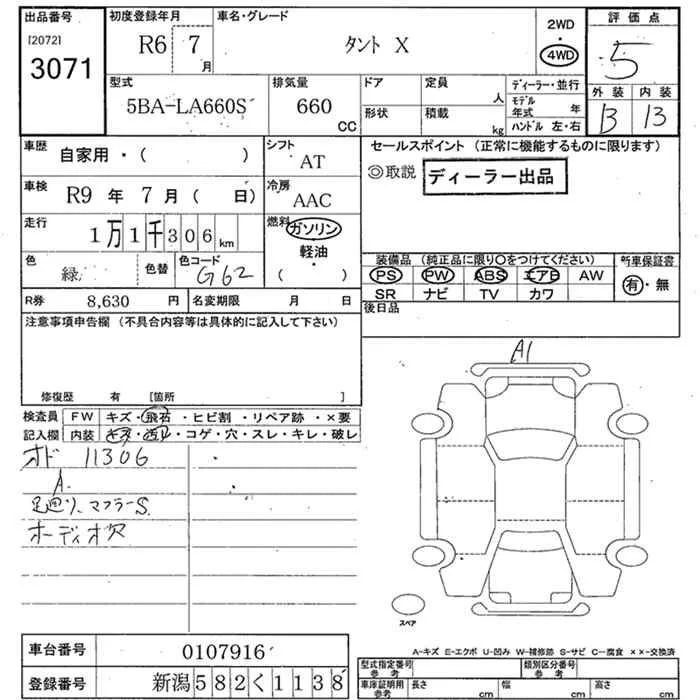 出品番号
[2072]
3071
初度登録年月
R6 7月
車名・グレード
タント X
2WD
4WD
評価点
5
外装 内装
B B
型式
5BA-LA660S
排気量
660
CC
ドア
形状
定員
人
積載
kg
ディーラー・並行
モデル年式 年
ハンドル 左・右
車歴
自家用・( )
シフト
AT
車検
R9 年 7 月 ( 日)
冷房
AAC
走行
1万1千306km
燃料
ガソリン
軽油
( )
色
緑
色替
色コード
G62
R券 8,630 円
名変期限 月 日
セールスポイント (正常に機能するものに限ります)
◎取説 ディーラー出品
装備品 (純正品に限り〇をつけてください)
PS PW ABS エアB AW
SR ナビ TV カワ
新車保証書
有・無
後日品
注意事項申告欄 (不具合内容等は具体的に記入して下さい)
修復歴 有 [箇所 ]
検査員記入欄
FW キズ・飛石・ヒビ割・リペア跡・×要
内装 キズ・凹・コゲ・穴・スレ・キレ・破レ
オド 11306
A
足廻リ、マフラーS
オーディオ穴
A1
スペア
A-キズ E-エクボ U-凹み W-補修跡 S-サビ C-腐食 ××-交換済
車台番号 0107916
登録番号 新潟 582 く 1138
型式指定番号 参考
類別区分番号 参考
車庫証明用 参考
長さ cm
幅 cm
高さ cm